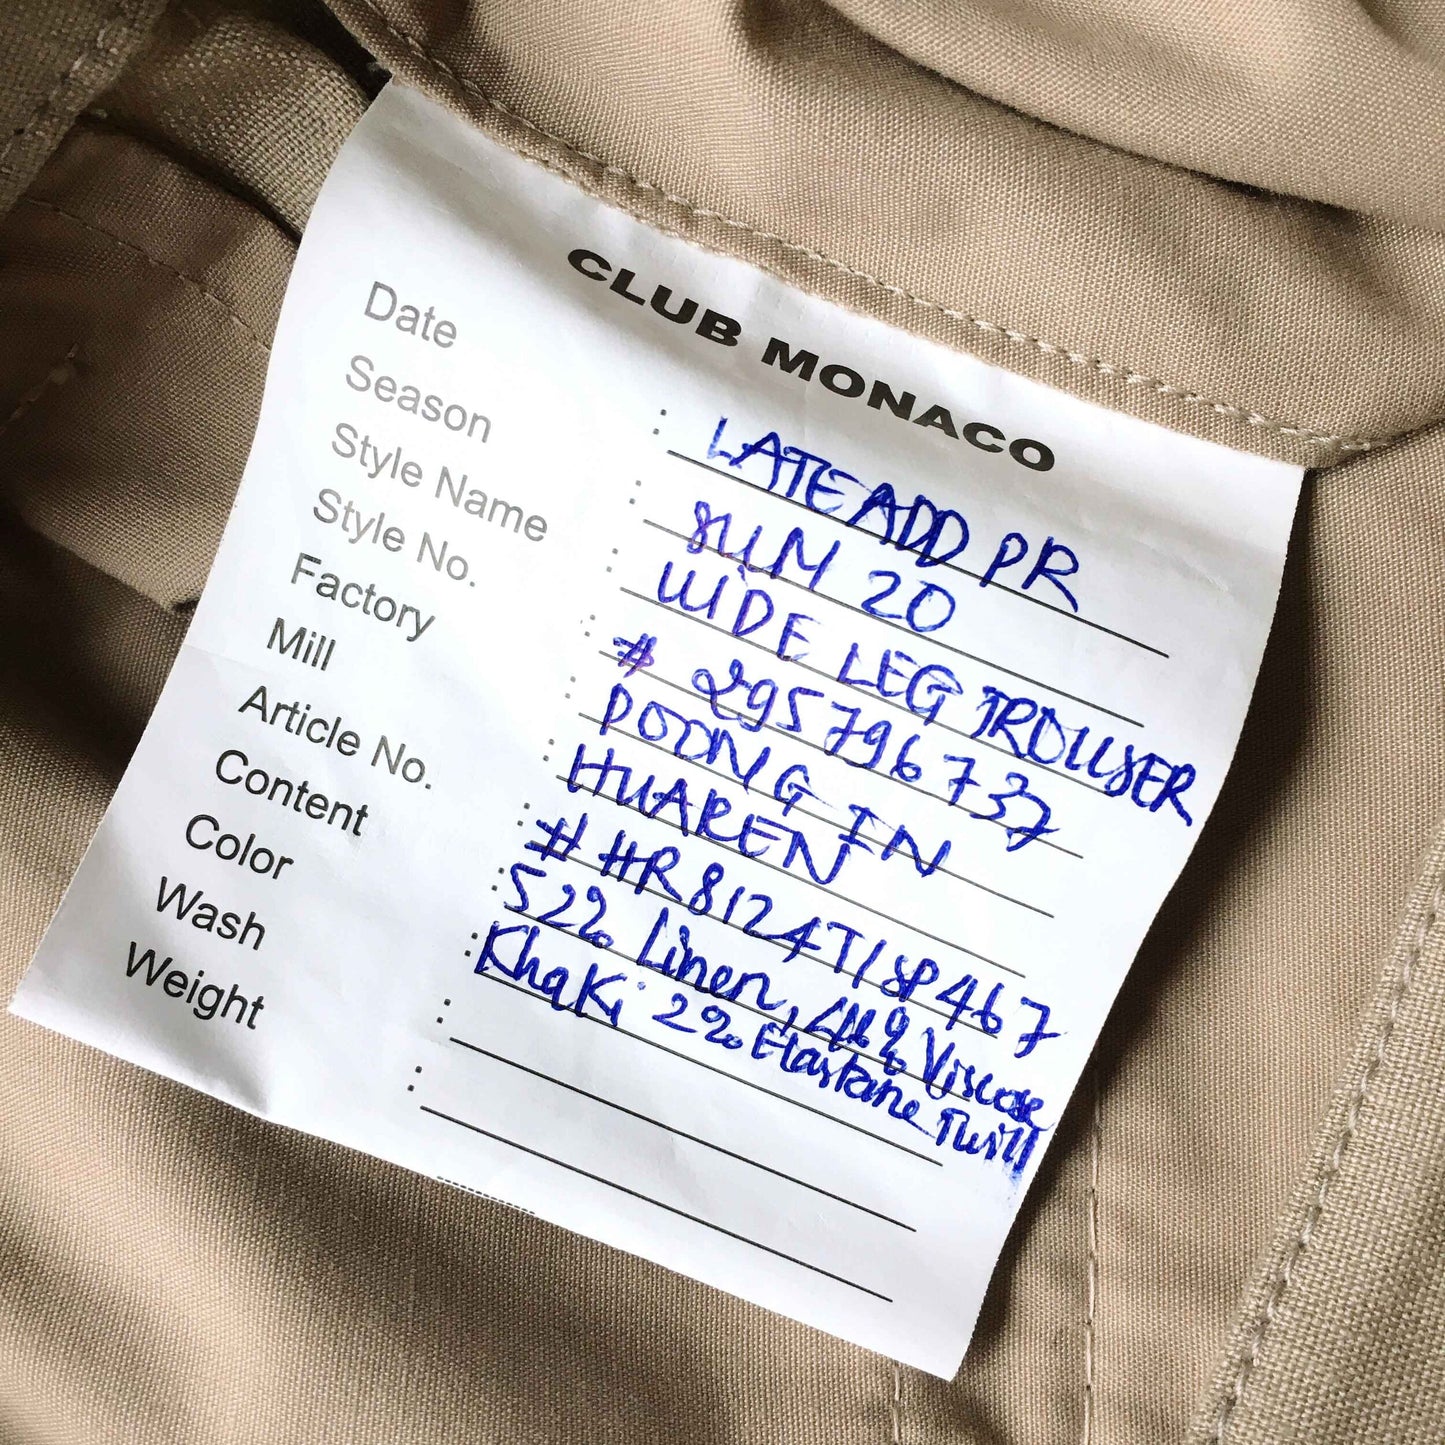 CLUB MONACO
Date : LATE ADD PR
Season : SUM 20
Style Name : WIDE LEG TROUSER
Style No. : # 29579673
Factory : POONG IN
Mill : HUAREN
Article No. : # HR8124T/SP467
Content : 52% Linen, 46% Viscose
Color : Khaki 2% Elastane Twill
Wash :
Weight :